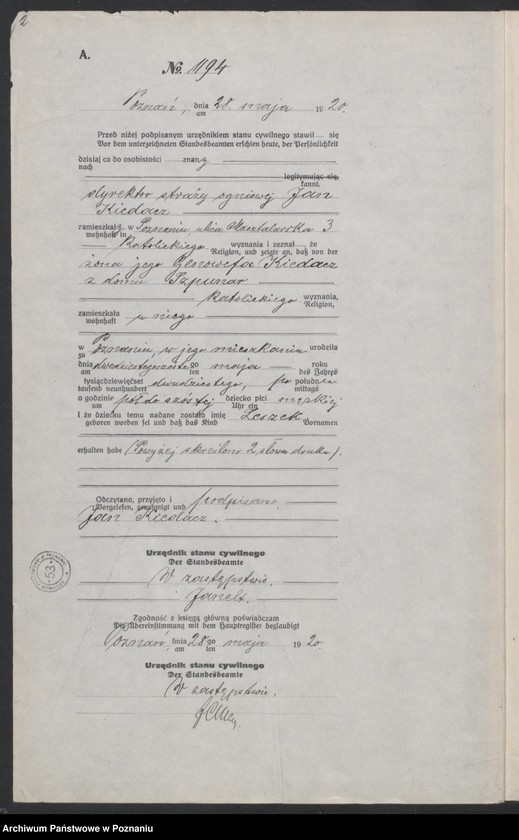 2
A.
№ 1194
Poznań, dnia 28. maja 1920.
am
Przed niżej podpisanym urzędnikiem stanu cywilnego stawił się
Vor dem unterzeichneten Standesbeamten erschien heute, der Persönlichkeit
dzisiaj co do osobistości znany
nach
legitymując się,
kannt.
dyrektor straży ogniowej Jan
Kiedacz
zamieszkały w Poznaniu, ulica Masztalarska 3
wohnhaft in
Katolickiego wyznania i zeznał że
Religion, und zeigte an, daß von der
żona jego Genowefa Kiedacz
z domu Szpunar
katolickiego wyznania,
Religion,
zamieszkała u niego
wohnhaft
w Poznaniu, w jego mieszkaniu urodziła
zu
dnia dwudziestego szóstego maja roku
am ten des Jahrs
tysiącdziewięćset dwudziestego, po południu
tausend neunhundert mittags
o godzinie pół do szóstej dziecko płci męskiej
um Uhr ein
i że dziecku temu nadane zostało imię Leszek
geboren worden sei und daß das Kind Vornamen
erhalten habe (Powyżej skreślono 2 słowa druku).
Odczytano, przyjęto i podpisano
Vorgelesen, genehmigt und
Jan Kiedacz.
Urzędnik stanu cywilnego
Der Standesbeamte
W zastępstwie.
Janelt.
53
Zgodność z księgą główną poświadczam
Die Übereinstimmung mit dem Hauptregister beglaubigt
Poznań, dnia 28 go maja 1920.
am ten
Urzędnik stanu cywilnego
Der Standesbeamte
W zastępstwie.
Archiwum Państwowe w Poznaniu